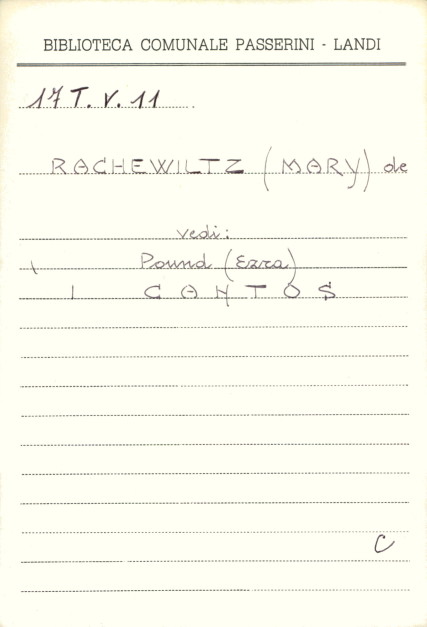 BIBLIOTECA COMUNALE PASSERINI - LANDI
17 T. V. 11
RACHEWILTZ (MARY) de
vedi:
Pound (Ezra)
I CANTOS
C